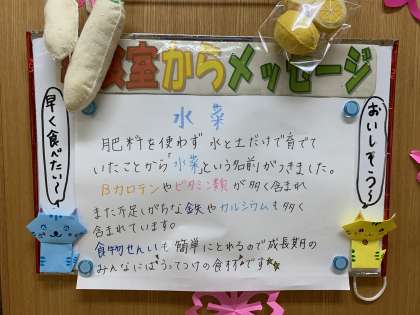 室からメッセージ
水菜
肥料を使わず 水と土だけで育てて
いたことから「水菜」という名前がつきました。
Bカロテンやビタミン類が多く含まれ
また不足しがちな鉄やカルシウムも多く
含まれています。
食物せんいも簡単にとれるので成長期の
みんなには"うってつけの食材"です
早く食べたい〜
おいしそう〜